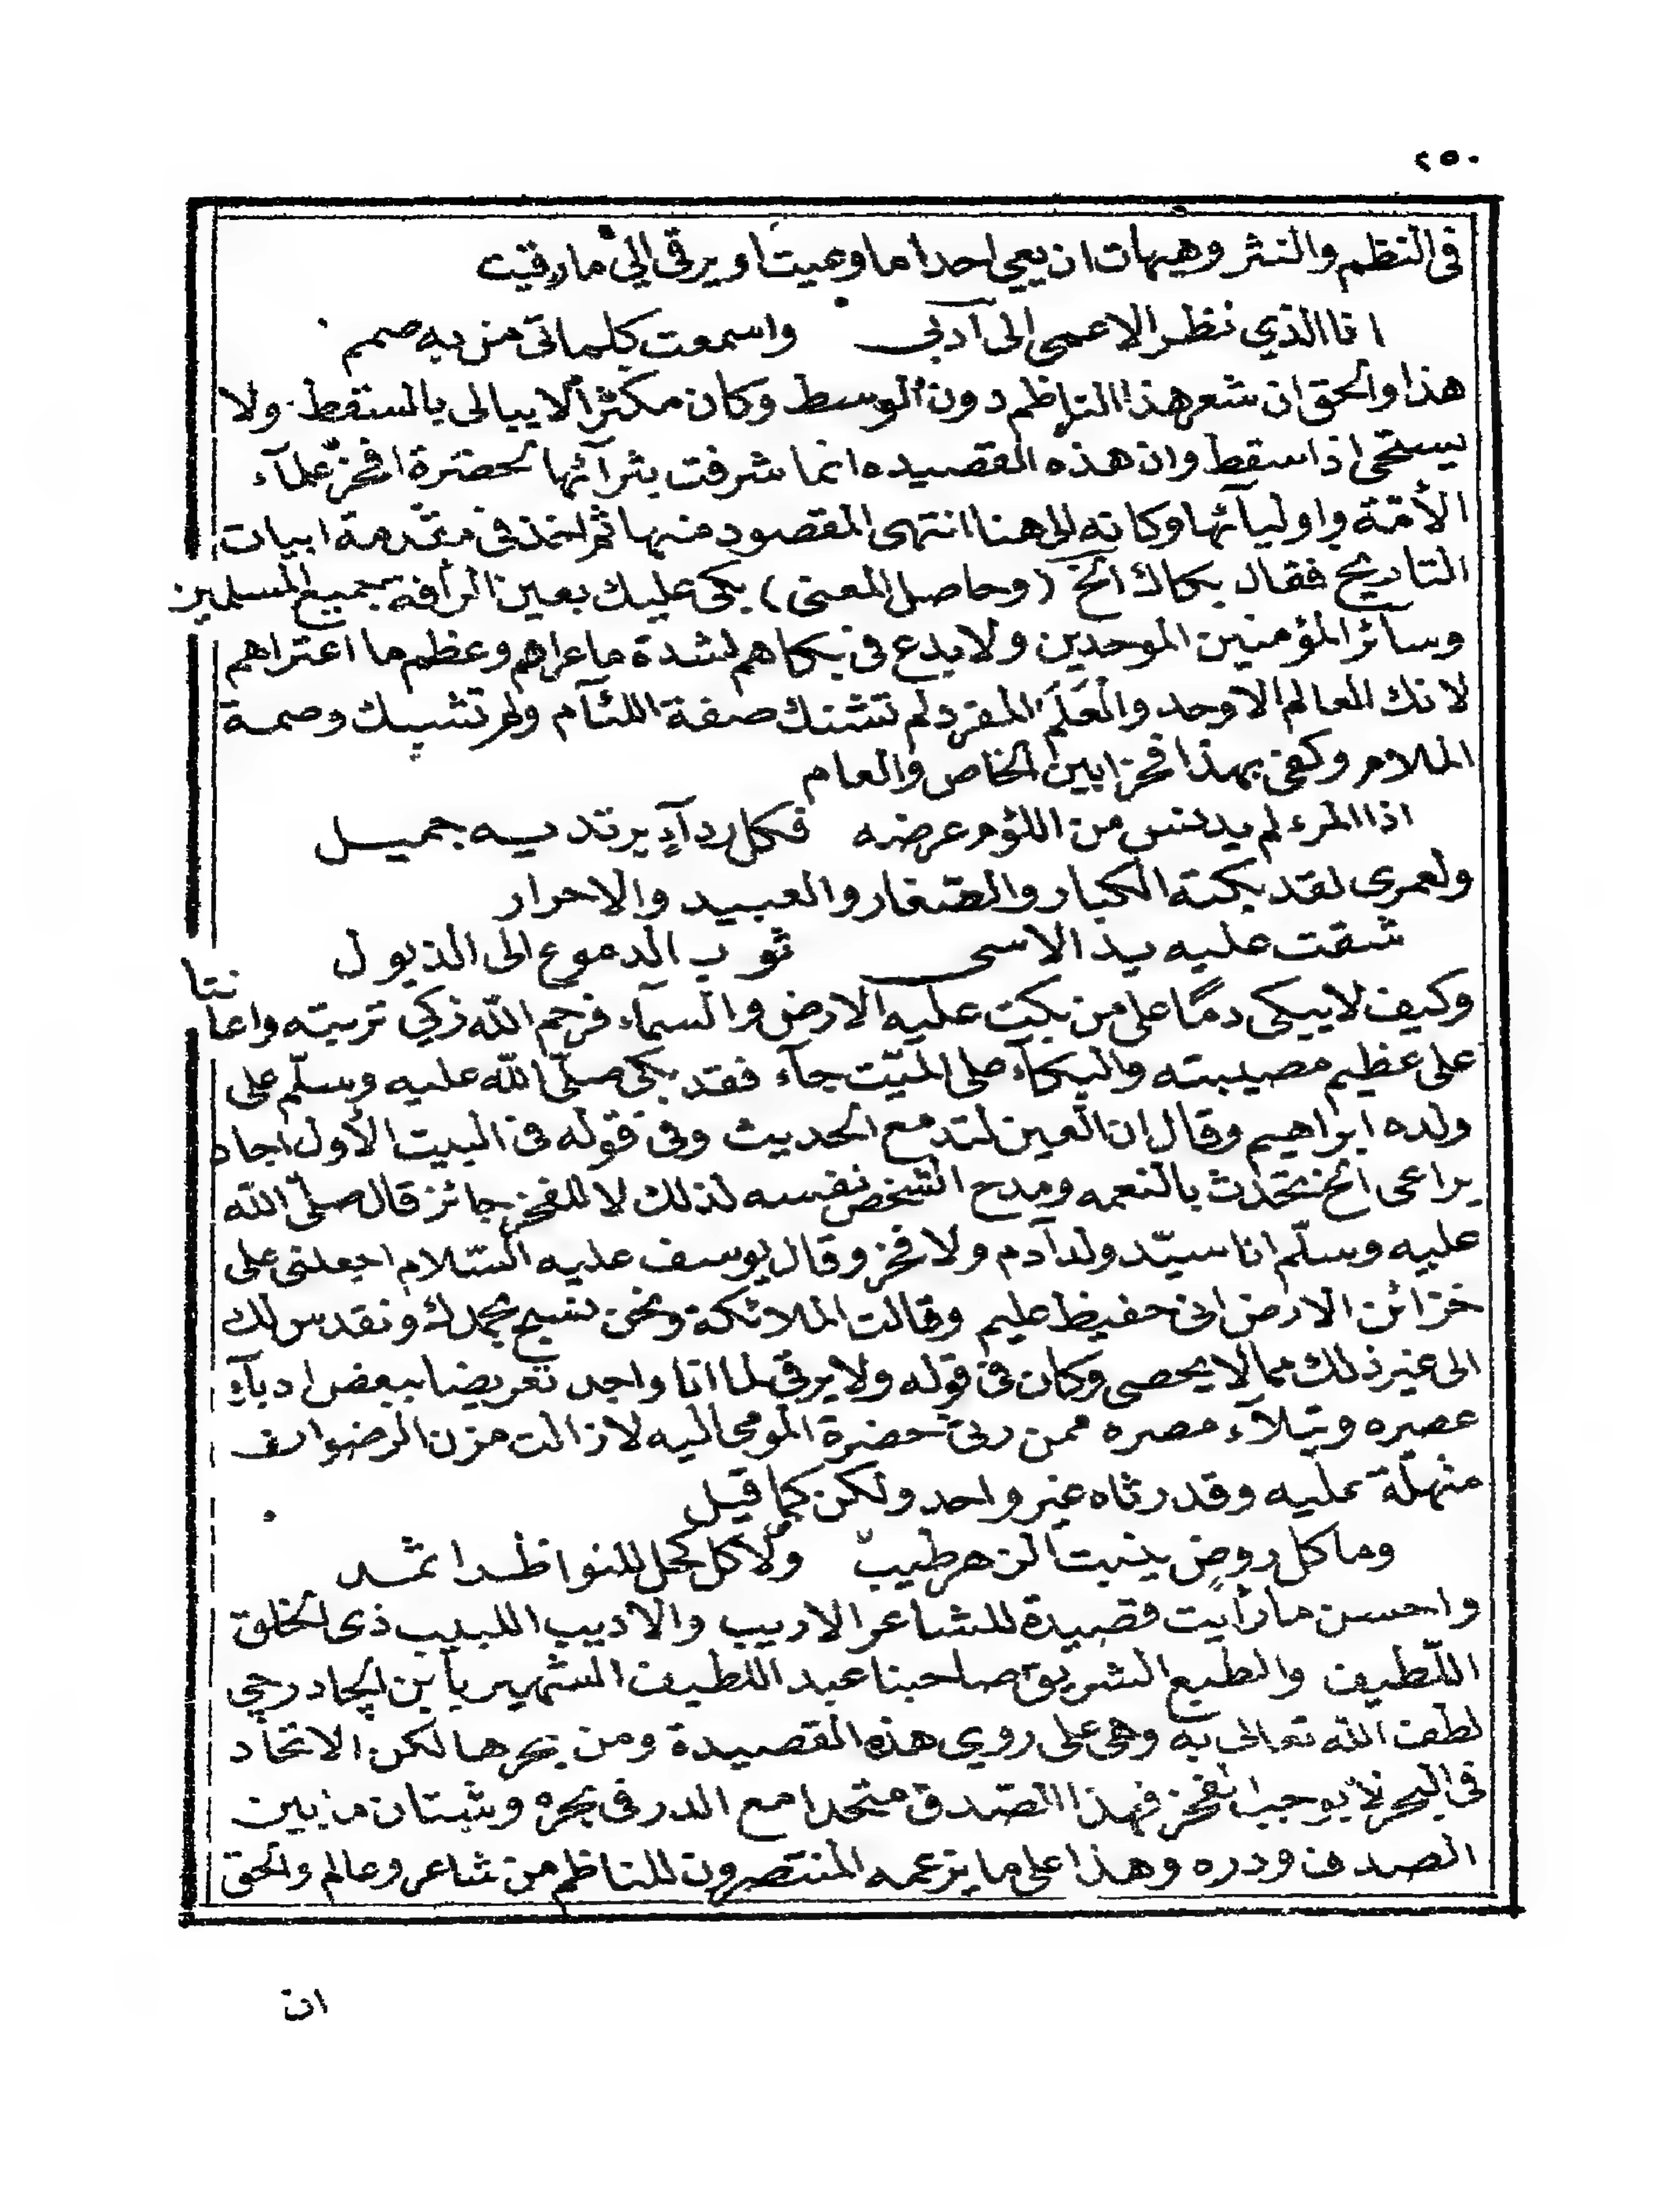 ٢٥٠
فى النظم والنثر وهيهات ان يعي احدا ما وعيت او يرقى الىٰ ما رقيت
انا الذي نظر الاعمى الى آدبى واسمعت كلماتى من به صمم
هذا والحق ان شعر هذا الناظم دون الوسط وكان مكثرا لا يبالى بالسقط ولا
يستحى اذا سقط وان هذه القصيده انما شرفت برثآئها لحضرة افخر علمآء
الأمّة واوليآئها وكانه الى هنا انتهى المقصود منها ثم اخذ فى مقدمة ابيات
التاريخ فقال بكاك الخ (وحاصل المعنى) بكى عليك بعين الرأفة جميع المسلمين
وسائر المؤمنين الموحدين ولا بدع فى بكاهم لشدة ما عراهم وعظم ما اعتراهم
لانك العالم الاوحد والعَلَم المفرد لم تشنك صفة اللئآم ولم تشبك وصمة
الملام وكفى بهذا فخرا بين الخاص والعام
اذا المرء لم يدنس من اللؤم عرضه فكل ردآءٍ يرتديه جميل
ولعمرى لقد بكته الكبار والصّغار والعبيد والاحرار
شقت عليه يد الاسى ثوب الدموع الى الذيول
وكيف لا يبكى دمًا على من بكت عليه الارض والسمآء فرحم الله زكي تربته واعا
نتا
على عظيم مصيبته والبكآء على الميّت جآء فقد بكى صلّى الله عليه وسلّم على
ولده ابراهيم وقال ان العين لتدمع الحديث وفى قوله فى البيت الأول اجاد
يراعى الخ تحدّث بالنعمه ومدح الشخص نفسه لذلك لا للفخر جائز قال صلّى الله
عليه وسلّم انا سيّد ولد آدم ولا فخر وقال يوسف عليه السّلام اجعلنى على
خزائن الارض انى حفيظ عليم وقالت الملائكة ونحن نسبح بحمدك ونقدس لك
الى غير ذلك مما لا يحصى وكان فى قوله ولا يرقى لما انا واجد تعريضا ببعض ادبآءِ
عصره ونبلآء مصره ممن رثىٰ حضرة المومى اليه لا زالت مزن الرضوان
منهلّة عليه وقد رثاه غير واحد ولكن كما قيل
وما كل روضٍ ينبت الزهر طيبٌ ولا كل كحل للنواظر اثمد
واحسن ما رأيت قصيدة للشاعر الاريب والاديب اللبيب ذى الخلق
اللّطيف والطبع الشريق صاحبنا عبد اللطيف الشهير بابن الجادرجي
لطف الله تعالى به وهى على روي هذه القصيدة ومن بحرها لكن الاتحاد
فى البحر لا يوجب الفخر فهذا الصّدف متحدا مع الدر فى بحره وشتان ما بين
الصدف ودره وهذا على ما يزعمه المنتصرون للناظم من شاعر وعالم والحق
ان